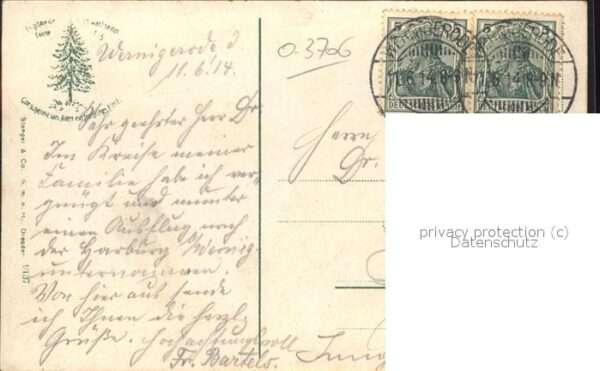 Wernigerode d.
11.6.14.
Sehr geehrter Herr Dr.
Im Kreise meiner
Familie habe ich ver-
gnügt und munter
einen Ausflug nach
der Harburg Wernig.
unternommen.
Von hier aus sende
ich Ihnen die herzl.
Grüße. Hochachtungsvoll
Fr. Bartels.
0.3706
Herrn
Dr.
WERNIGERODE
11.6.14.8-9N
5 5
Stengel & Co., G. m. b. H., Dresden
privacy protection (c)
Datenschutz